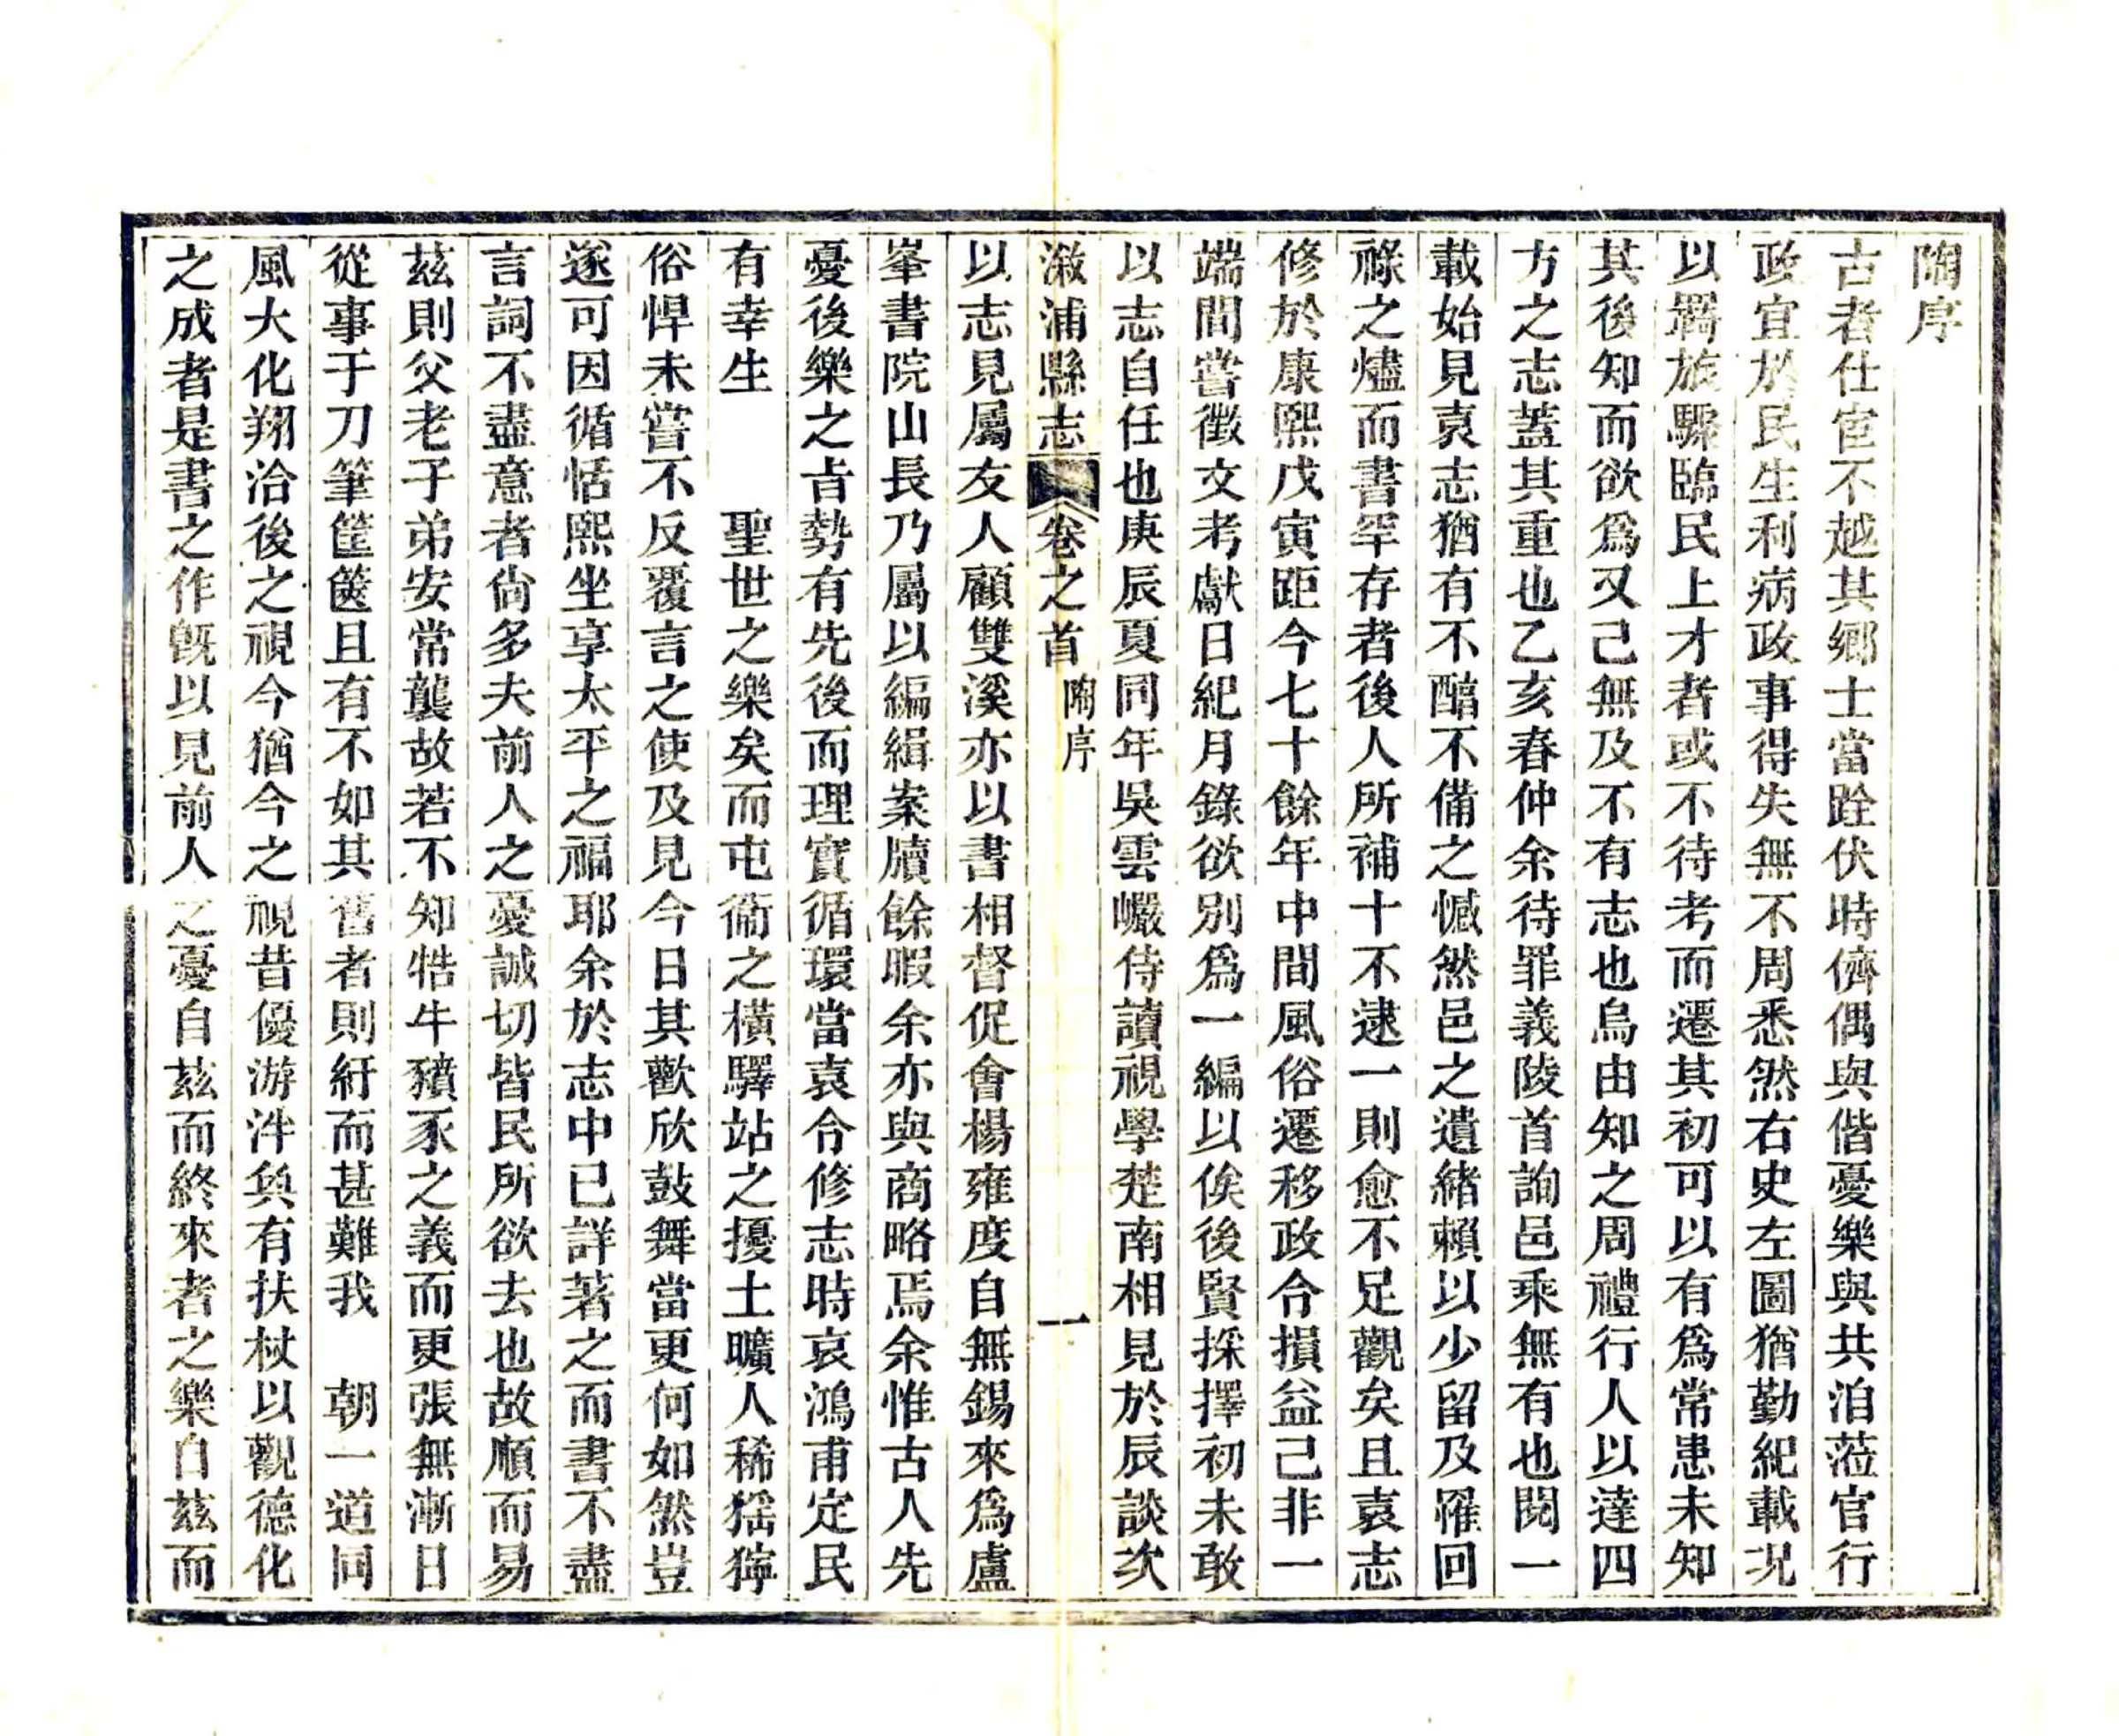 陶序
古者仕宦不越其鄉士當跧伏時儕偶與偕憂樂與共洎蒞官行
政宜於民生利病政事得失無不周悉然右史左圖猶勤紀載況
以羇旅驟臨民上才者或不待考而遷其初可以有爲常患未知
其後知而欲爲又己無及不有志也烏由知之周禮行人以達四
方之志蓋其重也乙亥春仲余待罪義陵首詢邑乘無有也閱一
載始見袁志猶有不醕不備之憾然邑之遺緒賴以少留及罹回
祿之燼而書罕存者後人所補十不逮一則愈不足觀矣且袁志
修於康熙戊寅距今七十餘年中間風俗遷移政令損益己非一
端間嘗徵文考獻日紀月錄欲別爲一編以俟後賢採擇初未敢
以志自任也庚辰夏同年吳雲巘侍讀視學楚南相見於辰談次
漵浦縣志
卷之首
陶序
一
以志見屬友人顧雙溪亦以書相督促會楊雍度自無錫來爲盧
峯書院山長乃屬以編緝案牘餘暇余亦與商略焉余惟古人先
憂後樂之㫖勢有先後而理實循環當袁令修志時哀鴻甫定民
有幸生　　聖世之樂矣而屯衞之橫驛站之擾土曠人稀猺獞
俗悍未嘗不反覆言之使及見今日其歡欣鼓舞當更何如然豈
遂可因循恬熙坐享太平之福耶余於志中已詳著之而書不盡
言詞不盡意者尙多夫前人之憂誠切皆民所欲去也故順而易
茲則父老子弟安常襲故若不知牿牛豶豕之義而更張無漸日
從事于刀筆筐篋且有不如其舊者則紆而甚難我　朝一道同
風大化翔洽後之視今猶今之視昔優游泮奐有扶杖以觀德化
之成者是書之作旣以見前人之憂自茲而終來者之樂自茲而